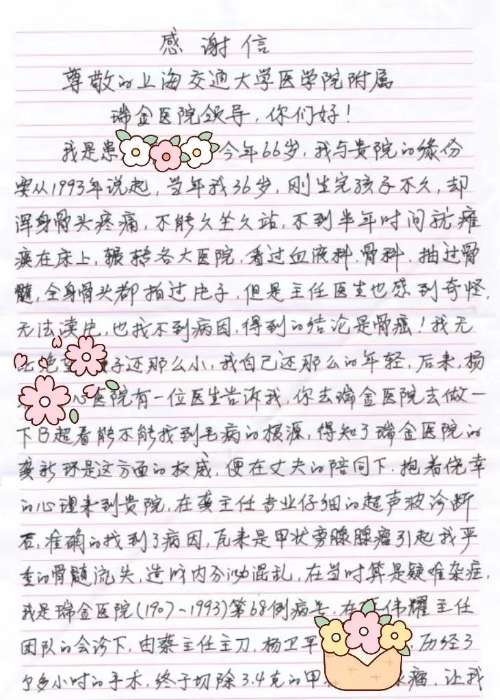 感谢信
尊敬的上海交通大学医学院附属
瑞金医院领导,你们好!
我是患 今年66岁,我与贵院的缘份
要从1993年说起,当年我36岁,刚生完孩子不久,却
浑身骨头疼痛,不能久坐久站,不到半年时间就瘫
痪在床上,辗转各大医院,看过血液科,骨科,抽过骨
髓,全身骨头都拍过片子,但是主任医生也感到奇怪,
无法读片,也找不到病因,得到的结论是骨癌!我无
子还那么小,我自己还那么的年轻,后来,杨
心医院有一位医生告诉我,你去瑞金医院去做一
下B超看能不能找到毛病的根源,得知了瑞金医院的
龚新环是这方面的权威,便在丈夫的陪同下,抱着侥幸
的心理来到贵院,在龚主任专业仔细的超声波诊断
后,准确的找到了病因,原来是甲状旁腺腺瘤引起我严
重的骨髓流失,造成内分泌混乱,在当时算是疑难杂症,
我是瑞金医院(1907~1993)第68例病号,在 伟耀主任
团队的会诊下,由蔡主任主刀,杨卫平 历经了
多小时的手术,终于切除3.4克的甲 瘤,让我